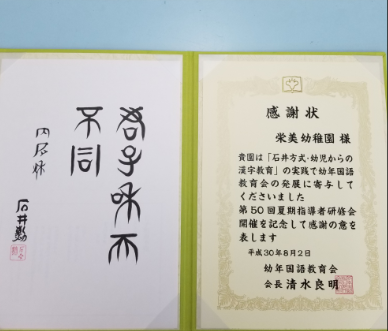 君子和而
不同
石井勲
感謝状
栄美幼稚園 様
貴園は「石井方式・幼児からの
漢字教育」の実践で幼年国語
教育会の発展に寄与して
くださいました
第50回夏期指導者研修会
開催を記念して感謝の意を
表します
平成30年8月2日
幼年国語教育会
会長 清水良明